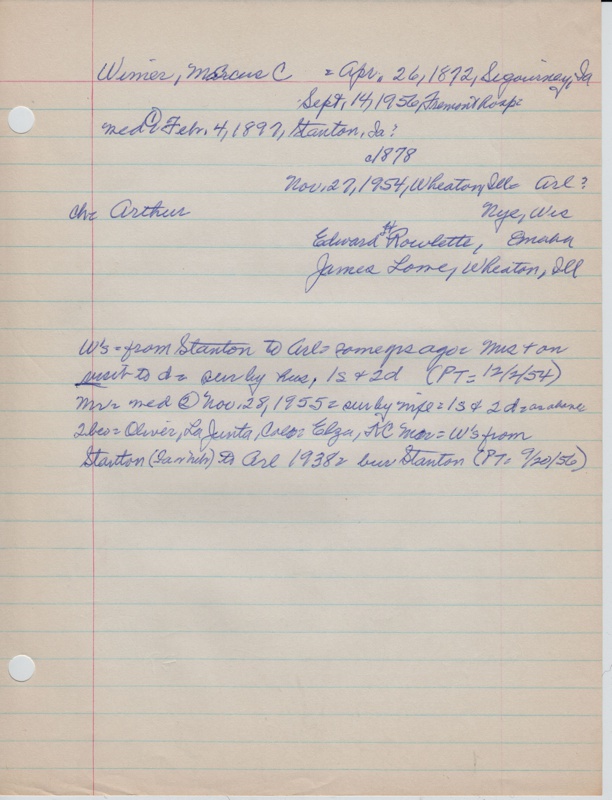 Wimer, Marcus C = Apr. 26, 1872, Sigourney, Ia
Sept. 14, 1956, Fremont Hosp=
med ① Feb. 4, 1897, Stanton, Ia?
c1878
Nov. 27, 1954, Wheaton, Ill= Arl?
ch= Arthur Nye, Wis
Edward Rowlette, Omaha
James Lowe, Wheaton, Ill
W's = from Stanton to Arl = some yrs ago = Mrs + on
visit to d = sur by hus, 1s + 2d (PT = 12/2/54)
Mr = med ② Nov. 28, 1955 = sur by wife = 1s + 2d = as above
2 bro = Oliver, La Junta, Colo = Elza, KC Mo = W's from
Stanton to Arl 1938 = bur Stanton (PT = 9/20/56)